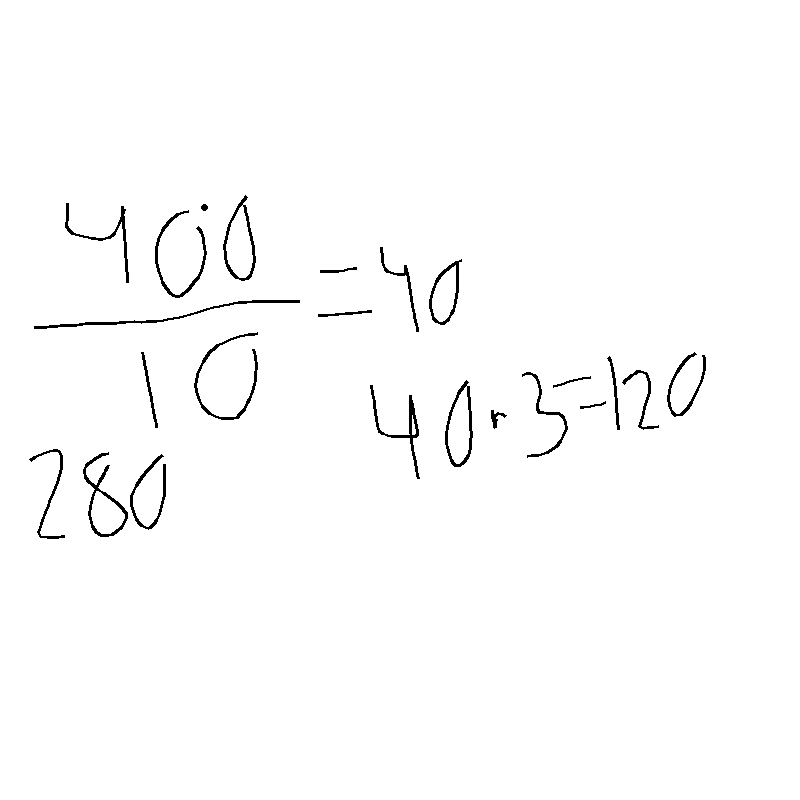 400
10
= 40
40 · 3 = 120
280